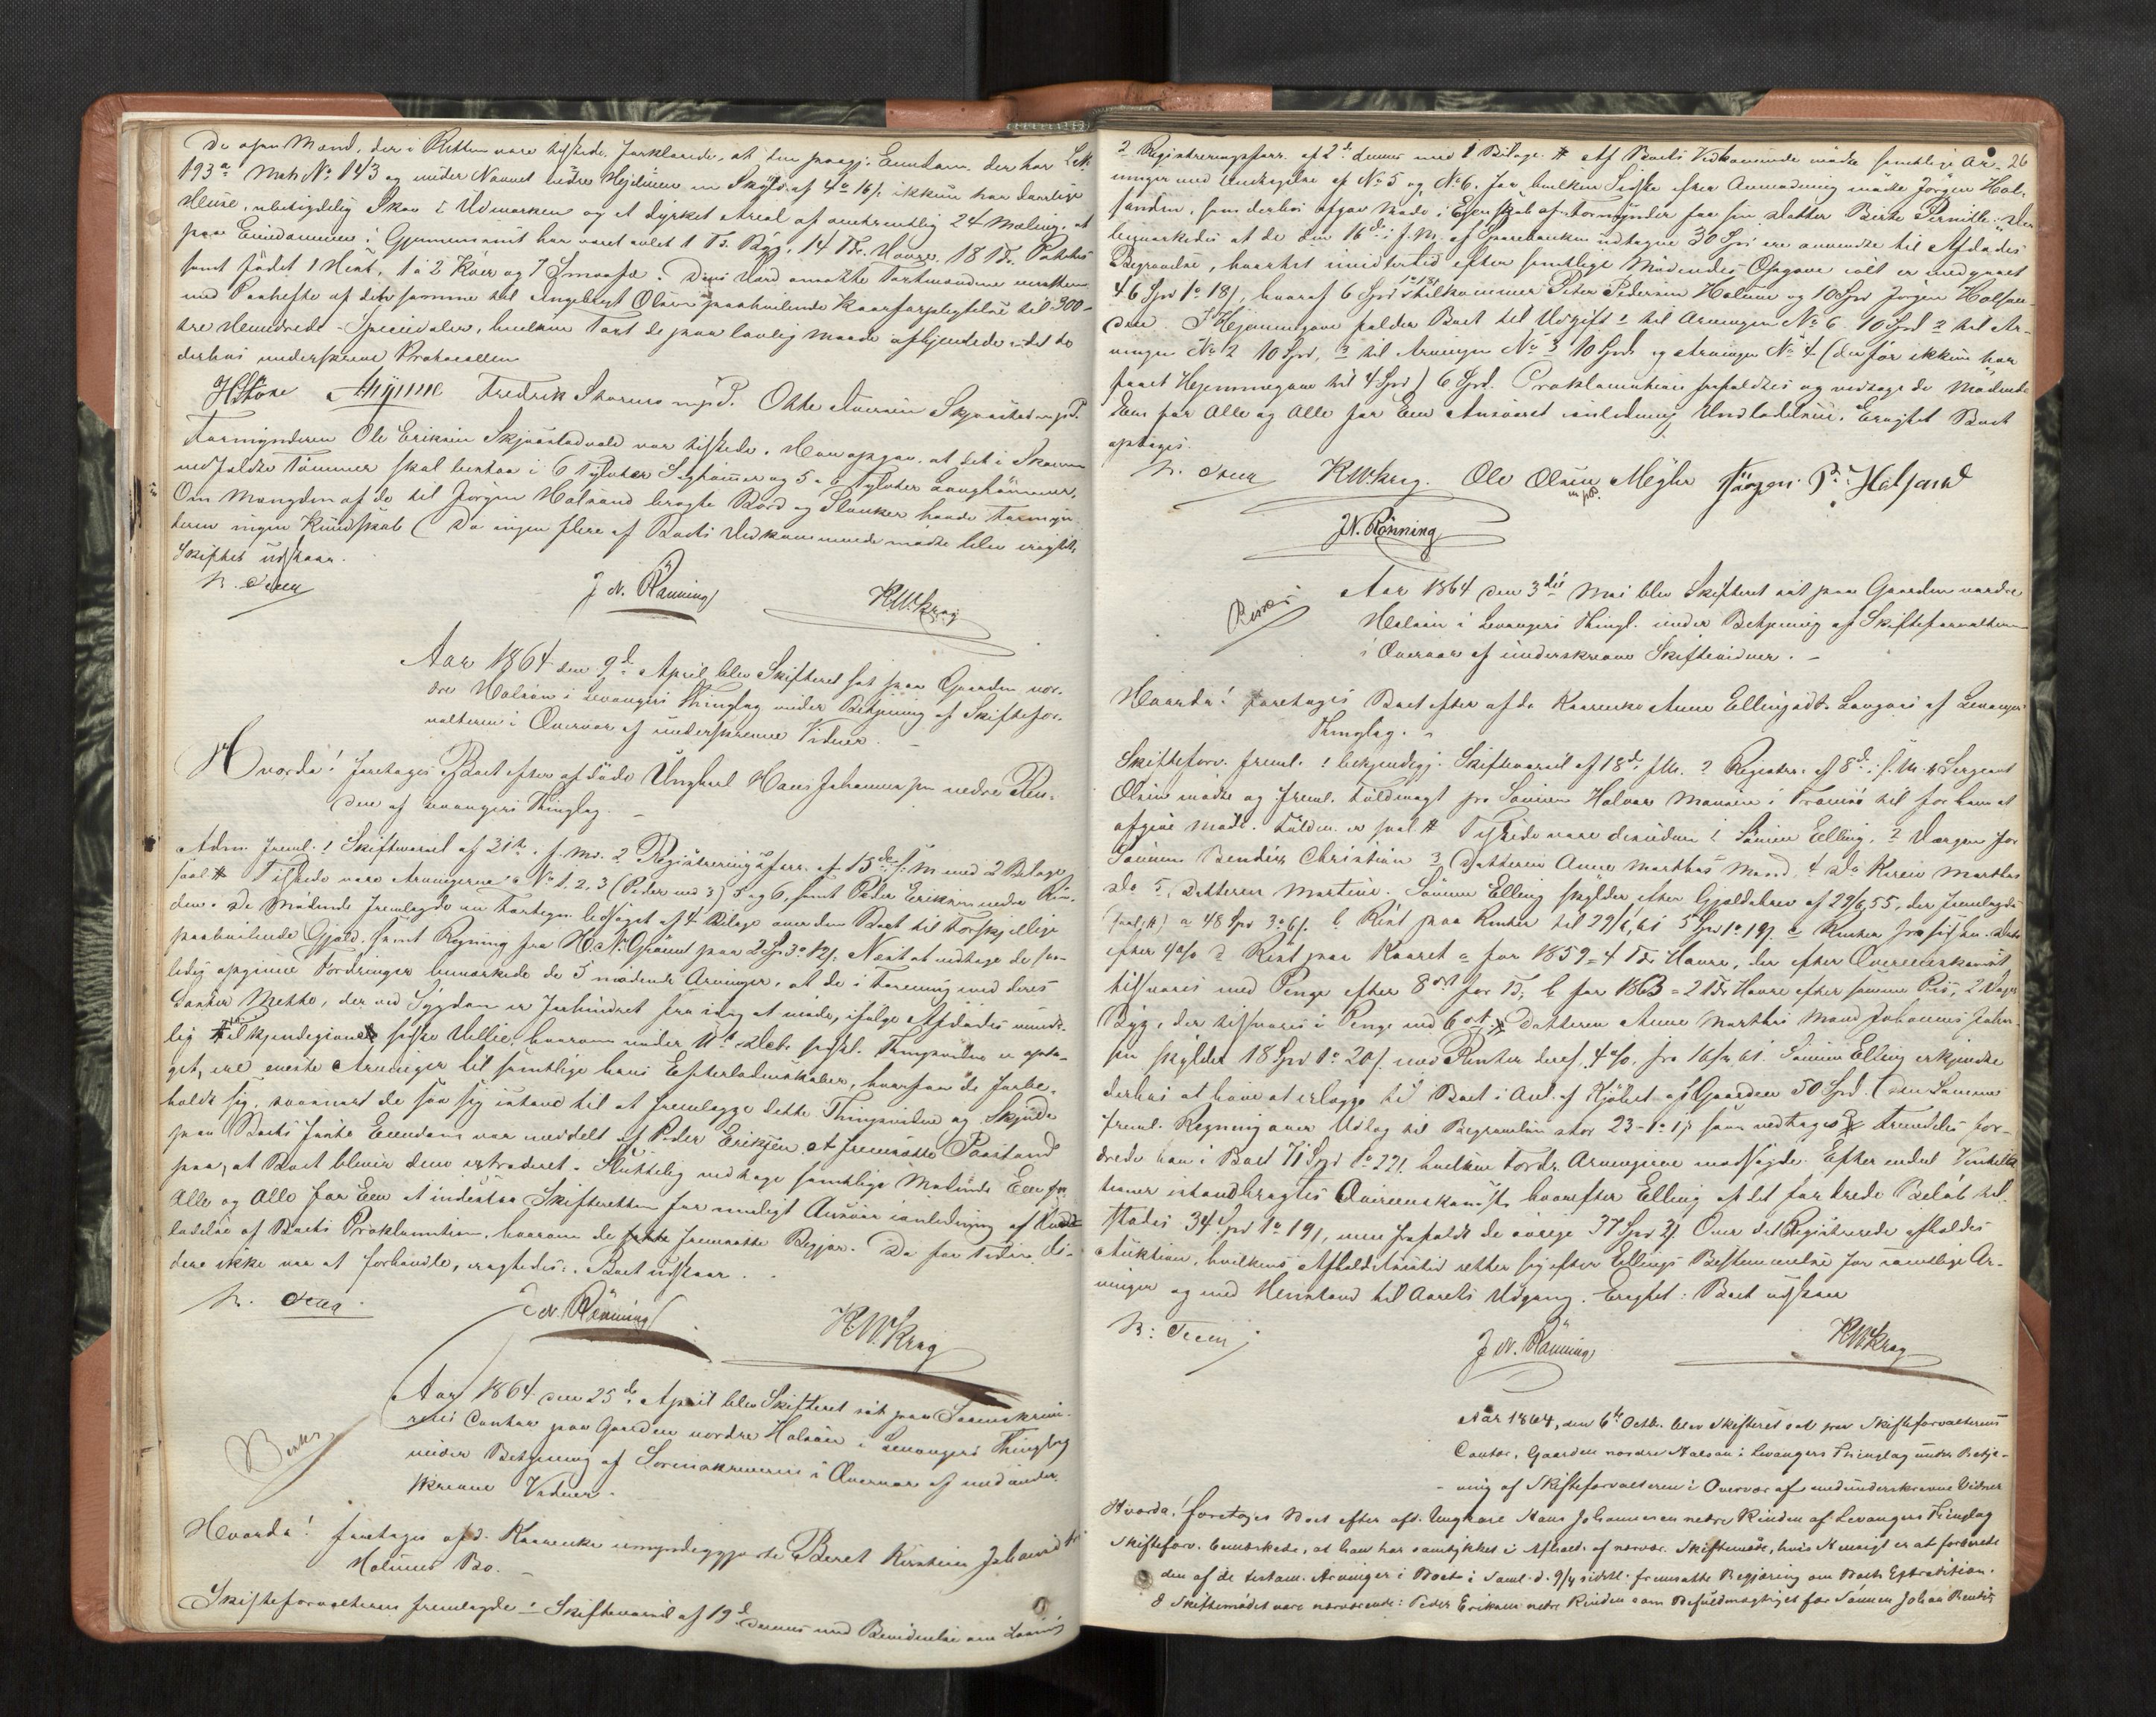 De ogsaa Mænd, der i Retten vare tilstede, forklarede, at den paagj. Eiendom, der har Løb
193a Mat. No 143 og under Navnet nedre Hejlmen en Skyld af 4 o 16 s. ikkun har daarlige
Huse, ubetydelig Skov i Udmarken og et dyrket Areal af omtrentlig 24 Maaling, at
paa Eiendommen i Gjennemsnit har været avlet 1 Td. Byg, 14 Tdr. Havre, 18 Tdr. Potetes
samt fødet 1 Hest, 1 à 2 Køer og 7 Smaafæ. Dens Værd ansatte Taxtmændene
med Paahefte af den samme til Ingebrigt Olsen paahvilende Kaarforpligtelse til 300
tre Hundrede Speciedaler, hvilken Taxt de paa lovlig Maade afhjemlede idet de
derhos underskreve Protocollen
Fredrik Skavnes m.p.P. Otte Andersen Skjerstad m.p.P.
Formynderen Ole Eriksen Skjerstadvald var tilstede. Han opgav, at det i Skoven
nedfældte Tømmer skal bestaa i 6 Tylvter Sagtømmer og 5 a 6 Tylvter Langtømmer.
Om Mængden af de til Jørgen Halsand bragte Bord og Planker havde Formyn-
deren ingen Kundskab. Da ingen flere af Boets Vedkommende mødte blev eragtet:
Skiftet udstaar.
J N. Rönning KWKrag
Aar 1864 den 9d April blev Skifteret sat paa Gaarden nor-
dre Halsan i Levangers Thinglag under Betjening af Skiftefor-
valteren i Overvær af underskrevne Vidner.
Hvorda! foretoges Boet efter afdøde Ungkarl Hans Johannesen nedre Rin-
den af Levangers Thinglag.
Adm. freml. 1 Skiftevarsel af 31te f. M. 2 Registreringsforr. af 15de f. M. med 2 Bilage
saal. # Tilstede vare Arvingerne No 1. 2. 3 (Peder ved 3) 5 og 6, samt Peder Eriksen nedre Rin-
den. De Mødende fremlagde en Fortegn. ledsaget af 4 Bilage over den Boet til Forskjellige
paahvilende Gjæld. samt Regning fra H. N. Grønnet paa 2 Sp 3 o 12 s. Næst at vedtage de saa-
ledes opgivne Fordringer bemærkede de 5 mødende Arvinger, at de i Forening med deres
Søster Mette, der ved Sygdom er forhindret fra idag at møde, ifølge Afdødes mundt-
lig tilkjendegivne sidste Villie, hvorom under 11te Decbr. sidstl. Thingsvidne er opta-
get, ere eneste Arvinger til samtlige hans Efterladenskaber, hvorfor de forbe-
holdt sig, saasnart de saa sig istand til at fremlægge dette Thingsvidne og Skjøde
paa Boets faste Eiendom var meddelt af Peder Eriksen at fremsætte Paastand
paa, at Boet bliver dem extraderet. Sluttelig vedtoge samtlige Mødende Een for
Alle og Alle for Een at indestaa Skifteretten for muligt Ansvar i anledning af Und-
ladelse af Boets Proklamation, hvorom de fremsatte Begjær. Da for Tiden Vi-
dere ikke var at forhandle, eragtedes: Boet udstaar.
J N. Rönning K.W.Krag
Aar 1864 den 25de April blev Skifteret sat paa Sorenskriv-
erens Contor paa Gaarden nordre Halsan i Levangers Thinglag
under Betjening af Sorenskriveren i Overvær af medunder-
skrevne Vidner.
Hvorda! foretoges afd. Kaarenke umyndiggjorte Beret Kirstine Johansdtr
Holmes Bo.
Skifteforvalteren fremlagde 1 Skiftevarsel af 19d dennes med Bevidnelse om Lovlig
26
2 Registreringsforr. af 2d dennes med 1 Bilage. # Af Boets Vedkommende mødte samtlige Ar-
vinger med Undtagelse af No 5 og No 6. For hvilken Sidste efter Anmodning mødte Jørgen Hal-
sanden, som derhos afgav Møde i Egenskab af Formynder for sin Datter Birte Pernille. Der
bemærkedes at de den 16de f. M. af Sparebanken udtagne 30 Spd ere anvendte til Afdødes
Begravelse, hvortil imidlertid efter samtlige Mødendes Opgave ialt er medgaaet
46 Spd 1 o 18 s, hvoraf 6 Spd 1 o 18 s tilkommer Peter Pedersen Holmen og 10 Spd Jørgen Halsan-
den. I Hjemmegave falder Boet til Udgift 1 til Arvingen No 6 10 Spd 2 til Ar-
vingen No 2 10 Spd, 3 til Arvingen No 3 10 Spd. og Arvingen No 4 (der før ikkun har
faaet Hjemmegave til 4 Spd) 6 Spd. Proklamation frafaldtes og vedtoge de Mødende
Een for Alle og Alle for Een Ansvaret i anledning Undladelsen. Eragtet Boet
optages.
KWKrag. Ole Olsen Megler m.p.P. Jörgen P. Halsand
J N. Rönning
Aar 1864 den 3die Mai blev Skifteret sat paa Gaarden nordre
Halsan i Levangers Thingl. under Betjening af Skifteforvalteren
i Overvær af underskrevne Skiftevidner.
Hvorda! foretoges Boet efter afde Kaarenke Anne Ellingsdtr Langaas af Levangers
Thinglag.
Skifteforv. freml. 1 bekjendtgj. Skiftevarsel af 18de f. M. 2 Registr. af 8de f. M. # Sergeant
Olsen mødte og freml. Fuldmagt fra Sønnen Halvor Monsen i Tromsø til for ham at
afgive Møde. Fuldm. er saal. # Tilstede vare desuden 1 Sønnen Elling, 2 Værgen for
Sønnen Bendix Christian 3 Datteren Anne Marthas Mand, 4 Do Karen Marthas
Do 5, Datteren Martine. Sønnen Elling skylder efter Gjældsbrev af 29/6 55, der fremlagdes
(saal. #) a 48 Spd 3 o 6 s. b Rest paa Renter til 29/6, 61 5 Spd 1 o 19 s c Renter fra sidstn. Dato
efter 4 o/o d Rest paa Kaaret a for 1859 = 4 Tdr. Havre, der efter Overeenskomst
tilsvares med Penge efter 8 ort pr Td; b for 1863 = 2 Tdr Havre efter samme Priis, 2 Voger
Byg, der tilsvares i Penge med 6 ort. Datteren Anne Marthas Mand Johannes Johan-
sen skylder 18 Spd 1 o 20 s. med Renter deraf 4 o/o. fra 16/4 61. Sønnen Elling erkjendte
derhos at have at erlægge til Boet i Anl. af Kjøbet af Gaarden 50 Spd. Den Samme
freml. Regning over Udlæg til Begravelsen stor 23 - 1 o 1 s som vedtages. Fremdeles for-
drede han i Boet 71 Spd 1 o 22 s. hvilken Fordr. Arvingerne modsagde. Efter endeel Ventila-
tioner istandbragtes Overeenskomst, hvorefter Elling af det fordrede Beløb til-
stodes 34 Spd 1 o 19 s, men frafaldt de øvrige 37 Spd 3 s. Over det Registrerede afholdes
Auktion, hvilkens Afholdelsestid retter sig efter Ellings Bestemmelse for samtlige Ar-
vinger og med Henstand til Aarets Udgang. Eragtet: Boet udstaar
J N. Rönning KWKrag
Aar 1864, den 6te Octbr. blev Skifteret sat paa Skifteforvalterens
Contor, Gaarden nordre Halsan i Levangers Thinglag under Betje-
ning af Skifteforvalteren i Overvær af medunderskrevne Vidner
Hvorda! foretoges Boet efter afd. Ungkarl Hans Johannesen nedre Rinden af Levangers Thinglag
Skifteforv. bemærkede, at han har samtykket i Afhold. af nærvær. Skiftemøde, hvis Hensigt er at forberede
den af de testam. Arvinger i Boet i Saml. d. 9/4 sidstl. fremsatte Begjæring om Boets Extradition.
I Skiftemødet vare nærværende: Peder Eriksen nedre Rinden som Befuldmægtiget for Sønnen Johan Bendix